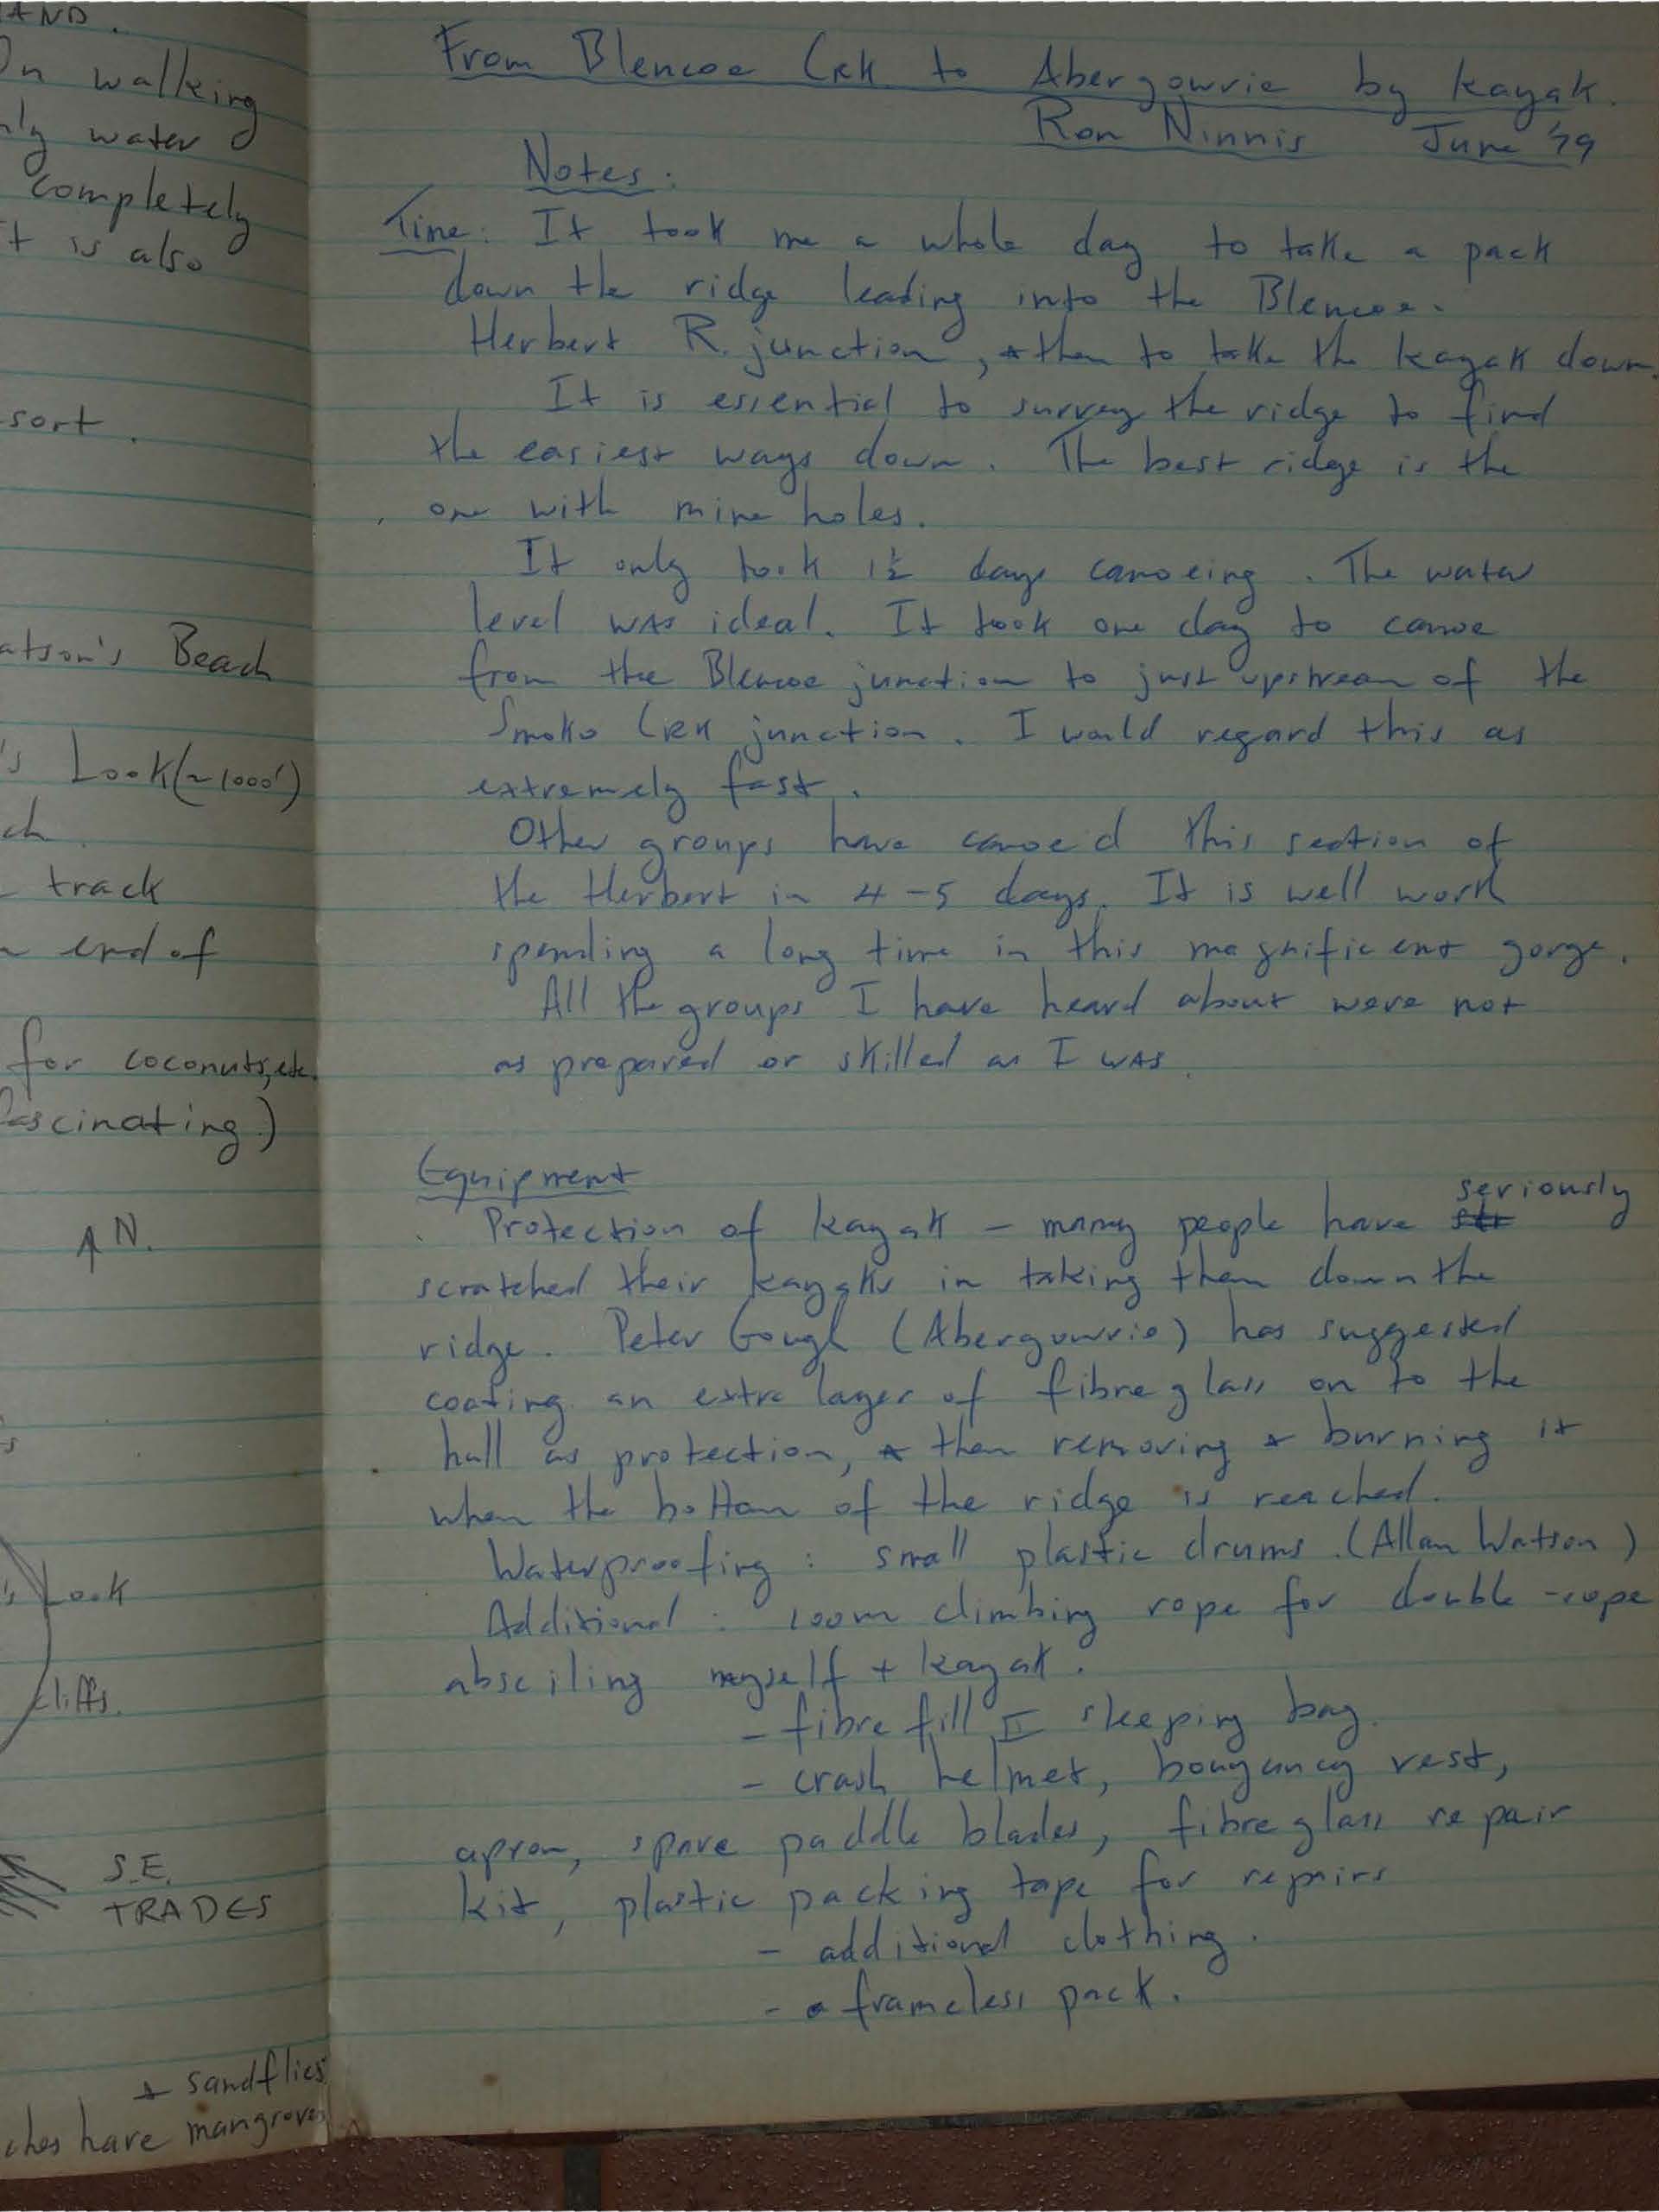 AND.
On walking
only water
completely
it is also
sort.
atson's Beach
's Look (~1000')
ch
track
end of
for coconuts, etc.
fascinating)
N.
's Look
cliffs.
S.E.
TRADES
+ sandflies
ches have mangroves
From Blencoe Crk to Abergowrie by kayak.
Ron Ninnis June '79
Notes:
Time: It took me a whole day to take a pack
down the ridge leading into the Blencoe-
Herbert R. junction, + then to take the kayak down.
It is essential to survey the ridge to find
the easiest ways down. The best ridge is the
one with mine holes.
It only took 1½ days canoeing. The water
level was ideal. It took one day to canoe
from the Blencoe junction to just upstream of the
Smoko Crk junction. I would regard this as
extremely fast.
Other groups have canoe'd this section of
the Herbert in 4-5 days. It is well worth
spending a long time in this magnificent gorge.
All the groups I have heard about were not
as prepared or skilled as I was.
Equipment
Protection of kayak - many people have seriously
scratched their kayaks in taking them down the
ridge. Peter Gough (Abergowrie) has suggested
coating an extra layer of fibreglass on to the
hull as protection, + then removing + burning it
when the bottom of the ridge is reached.
Waterproofing: small plastic drums. (Allan Watson)
Additional: 100m climbing rope for double-rope
absciling myself + kayak.
- fibrefill II sleeping bag.
- crash helmet, bouyancy vest,
apron, spare paddle blades, fibreglass repair
kit, plastic packing tape for repairs
- additional clothing.
- a frameless pack.